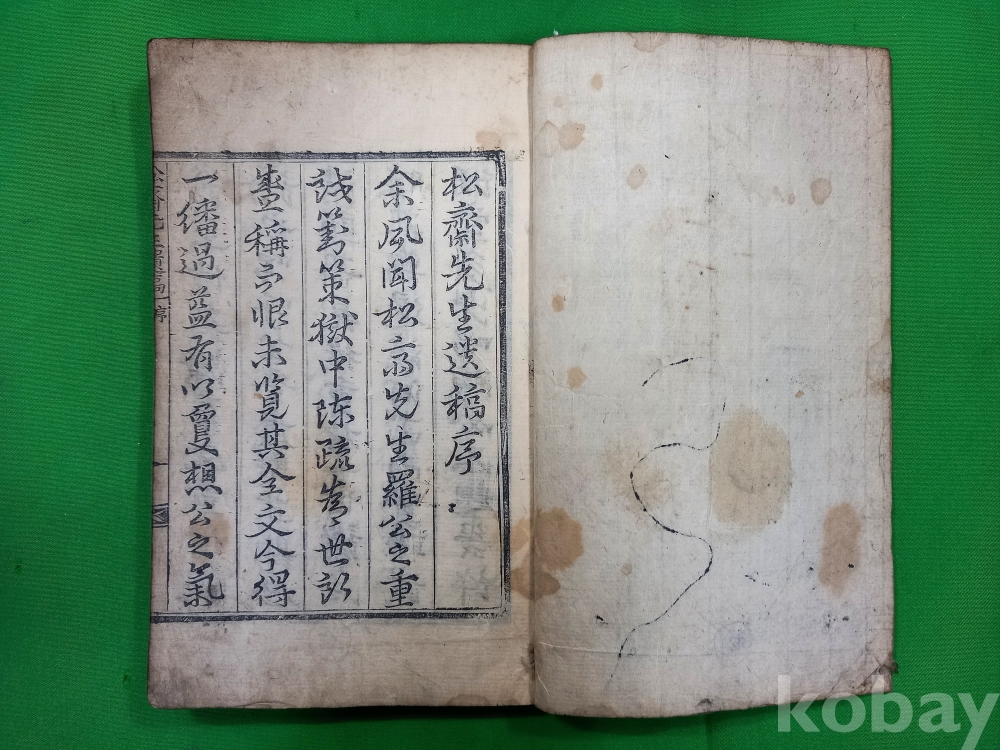 松齋先生遺稿序
余風聞松斋先生羅公之重
試對策獄中陳疏為世所
盛稱恨未覽其全文今得
一繙過益有以敻想公之氣
序
kobay